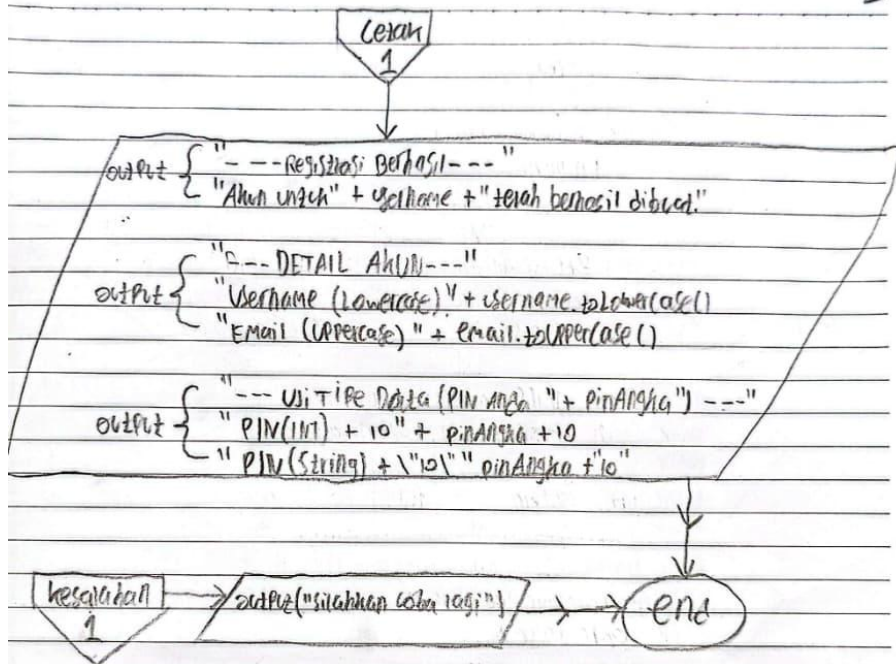 Cetak
1
output { "- - - Registrasi Berhasil - - -"
"Akun untuk" + username + "telah berhasil dibuat."
output { "--- DETAIL AKUN---"
"Username (Lowercase)" + username.toLowerCase()
"Email (UPPERCASE) " + email.toUpperCase()
output { "--- Uji TiPe Data (PIN Anga "+ pinAngka") ---"
" PIN(INT) + 10" + pinAngka +10
" PIN(String) + \"10\" " pinAngka +"10"
kesalahan
1
output("silahkan coba lagi")
end